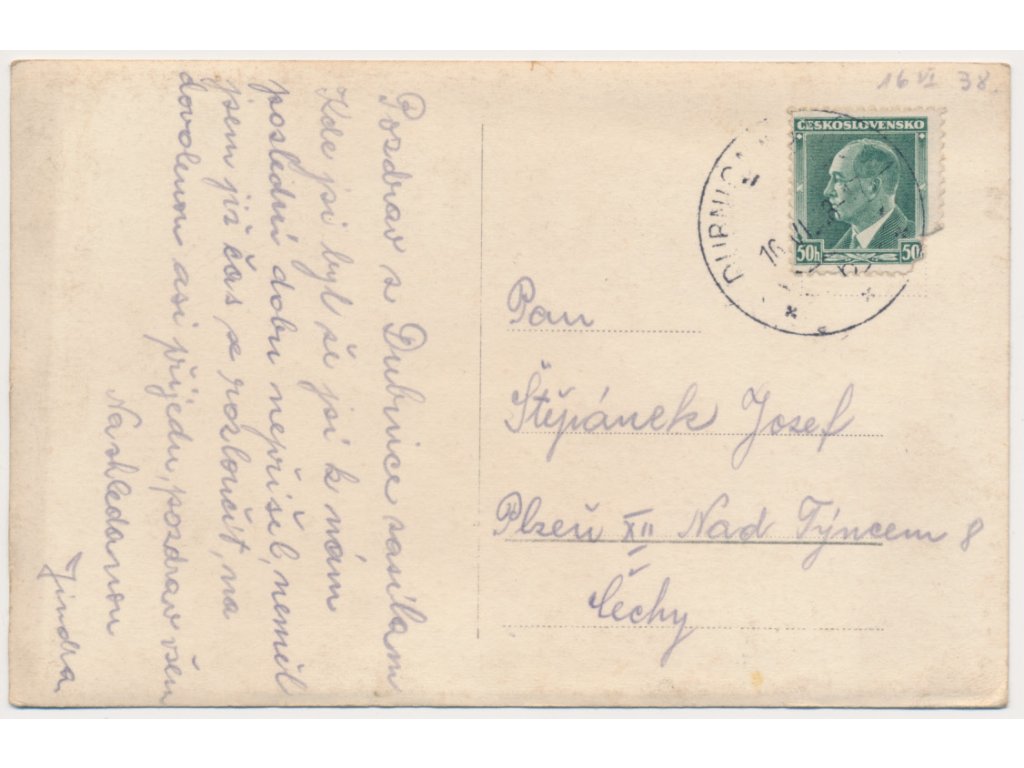 Pozdrav z Dubnice zasílam
Kde jsi byl še jsi k nám
poslední dobu nepřišel, neměl
jsem již čas se rozloučit, na
dovolenou asi přijedu, pozdrav všem
Nashledanou
Jindra
16 VI 38.
ČESKOSLOVENSKO
50h 50
DUBNICA
16 VI.
Pan
Štěpánek Josef
Plzeň XII Nad Týncem 8
Čechy